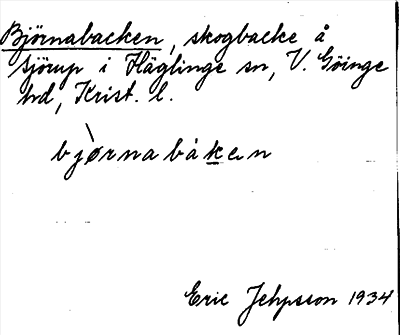 Björnabacken, skogbacke å
Sjörup i Häglinge sn, V. Göinge
hd, Krist. l.
bjòrnabåken
Eric Jepsson 1934